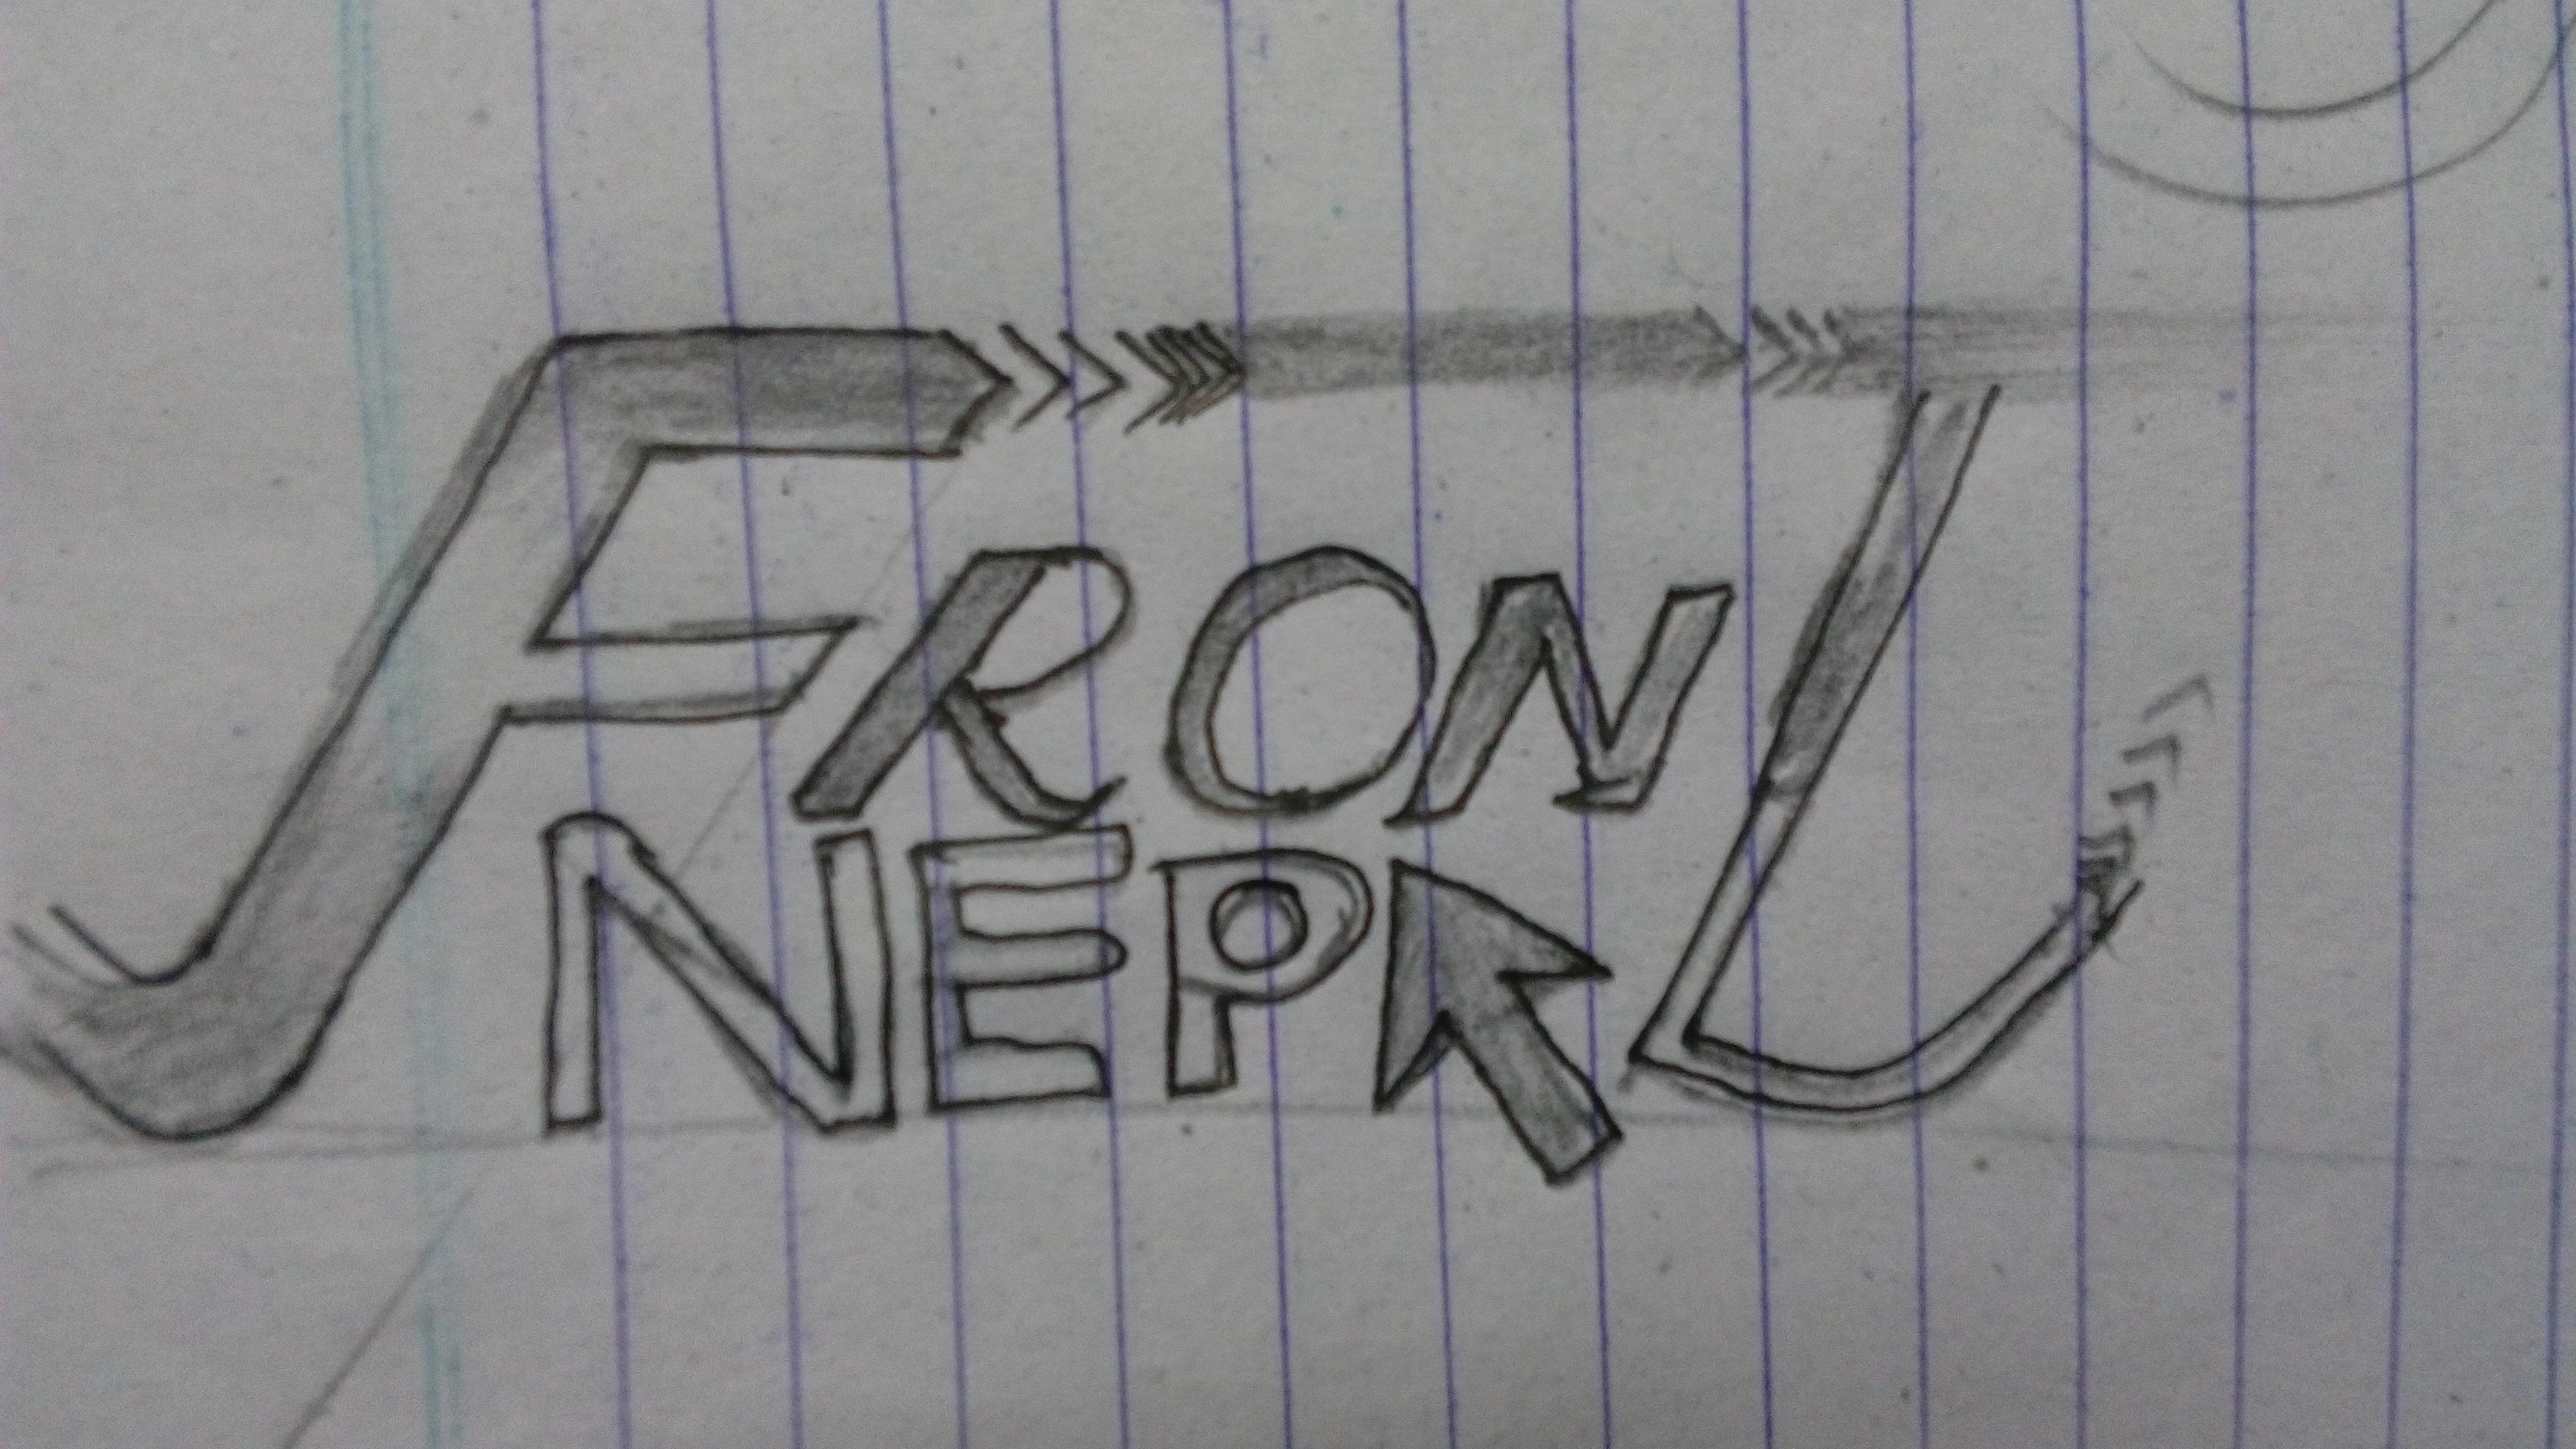 FRONT
NEPAL